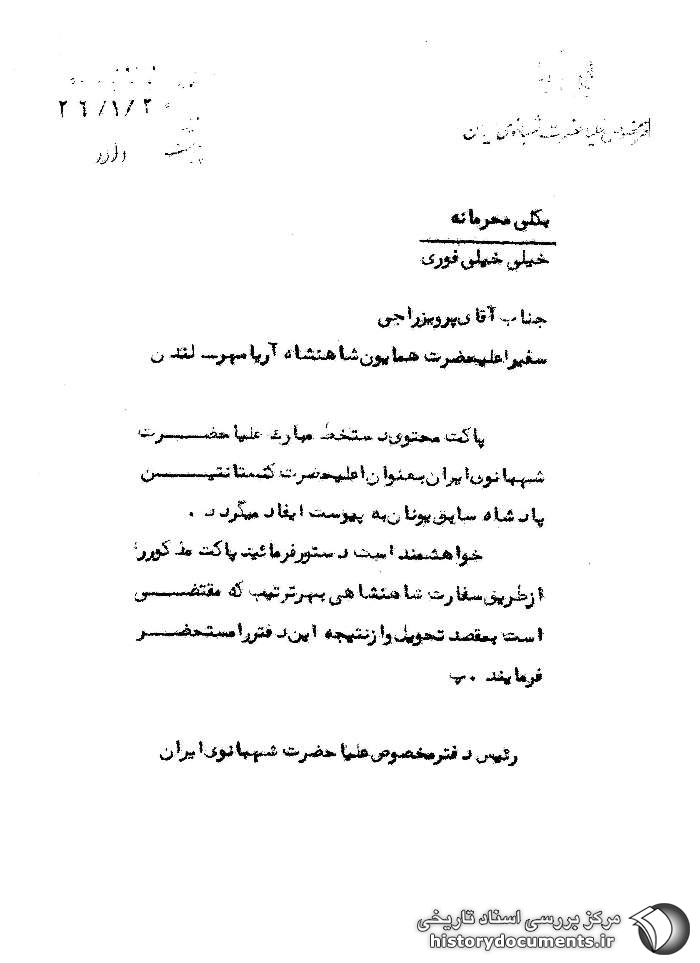 دفتر مخصوص علیاحضرت شهبانوی ایران
۲۶/۱/۲
پیوست دارد
بکلی محرمانه
خیلی خیلی فوری
جناب آقای پرویز راجی
سفیر اعلیحضرت همایون شاهنشاه آریامهر ـ لندن
پاکت محتوی دستخط مبارک علیاحضرت
شهبانوی ایران بعنوان اعلیحضرت کنستانتین
پادشاه سابق یونان به پیوست ایفاد میگردد .
خواهشمند است دستور فرمائید پاکت مذکور را
از طریق سفارت شاهنشاهی بهر ترتیب که مقتضی
است بمقصد تحویل و از نتیجه این دفتر را مستحضر
فرمایند .
رئیس دفتر مخصوص علیاحضرت شهبانوی ایران
مرکز بررسی اسناد تاریخی
historydocuments.ir